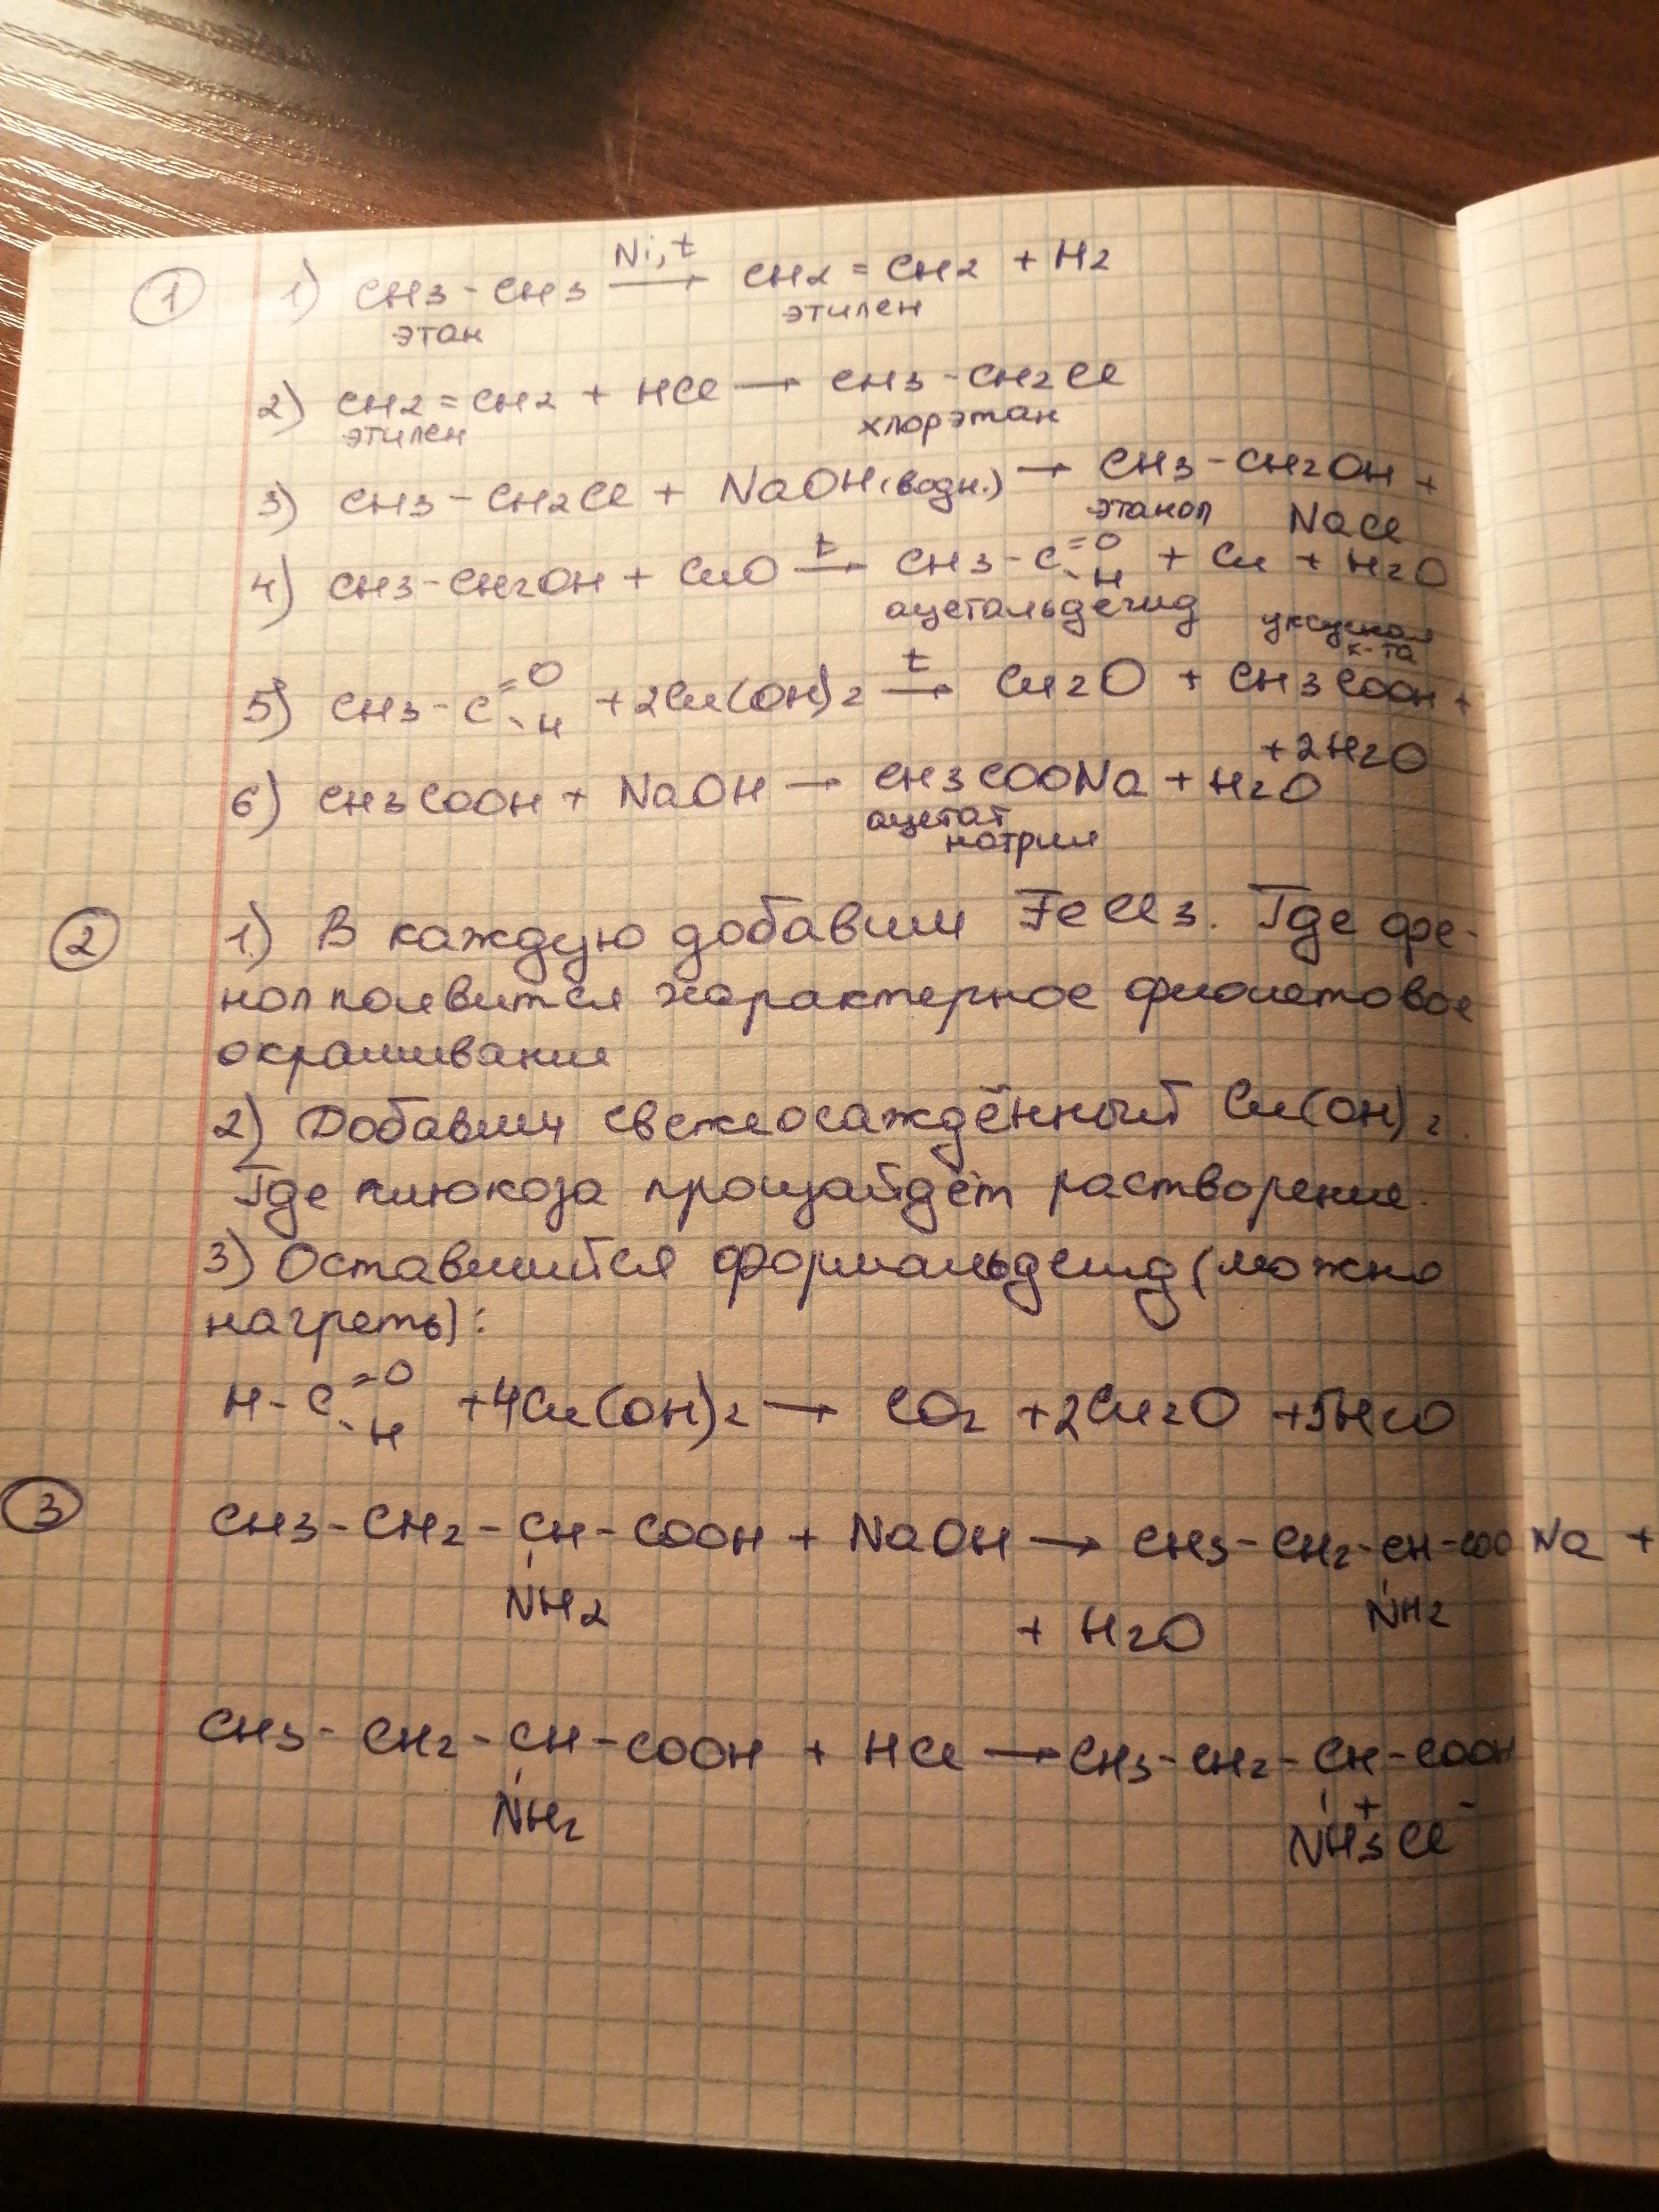 1 1) CH3 - CH3 Ni, t → CH2 = CH2 + H2
этан этилен
2) CH2 = CH2 + HCl → CH3 - CH2Cl
этилен хлорэтан
3) CH3 - CH2Cl + NaOH (водн.) → CH3 - CH2OH +
этанол NaCl
4) CH3 - CH2OH + CuO t → CH3 - C =O - H + Cu + H2O
ацетальдегид уксусная к-та
5) CH3 - C =O - H + 2Cu(OH)2 t → Cu2O + CH3COOH +
+ 2H2O
6) CH3COOH + NaOH → CH3COONa + H2O
ацетат
натрия
2 1) В каждую добавим FeCl3. Где фе-
нол появится характерное фиолетовое
окрашивание
2) Добавим свежеосаждённый Cu(OH)2.
Где глюкоза произойдёт растворение.
3) Оставшийся формальдегид (можно
нагреть):
H - C =O - H + 4Cu(OH)2 → CO2 + 2Cu2O + 5H2O
3 CH3 - CH2 - CH - COOH + NaOH → CH3 - CH2 - CH - COONa +
NH2 NH2
+ H2O
CH3 - CH2 - CH - COOH + HCl → CH3 - CH2 - CH - COOH
NH2 NH3+Cl-